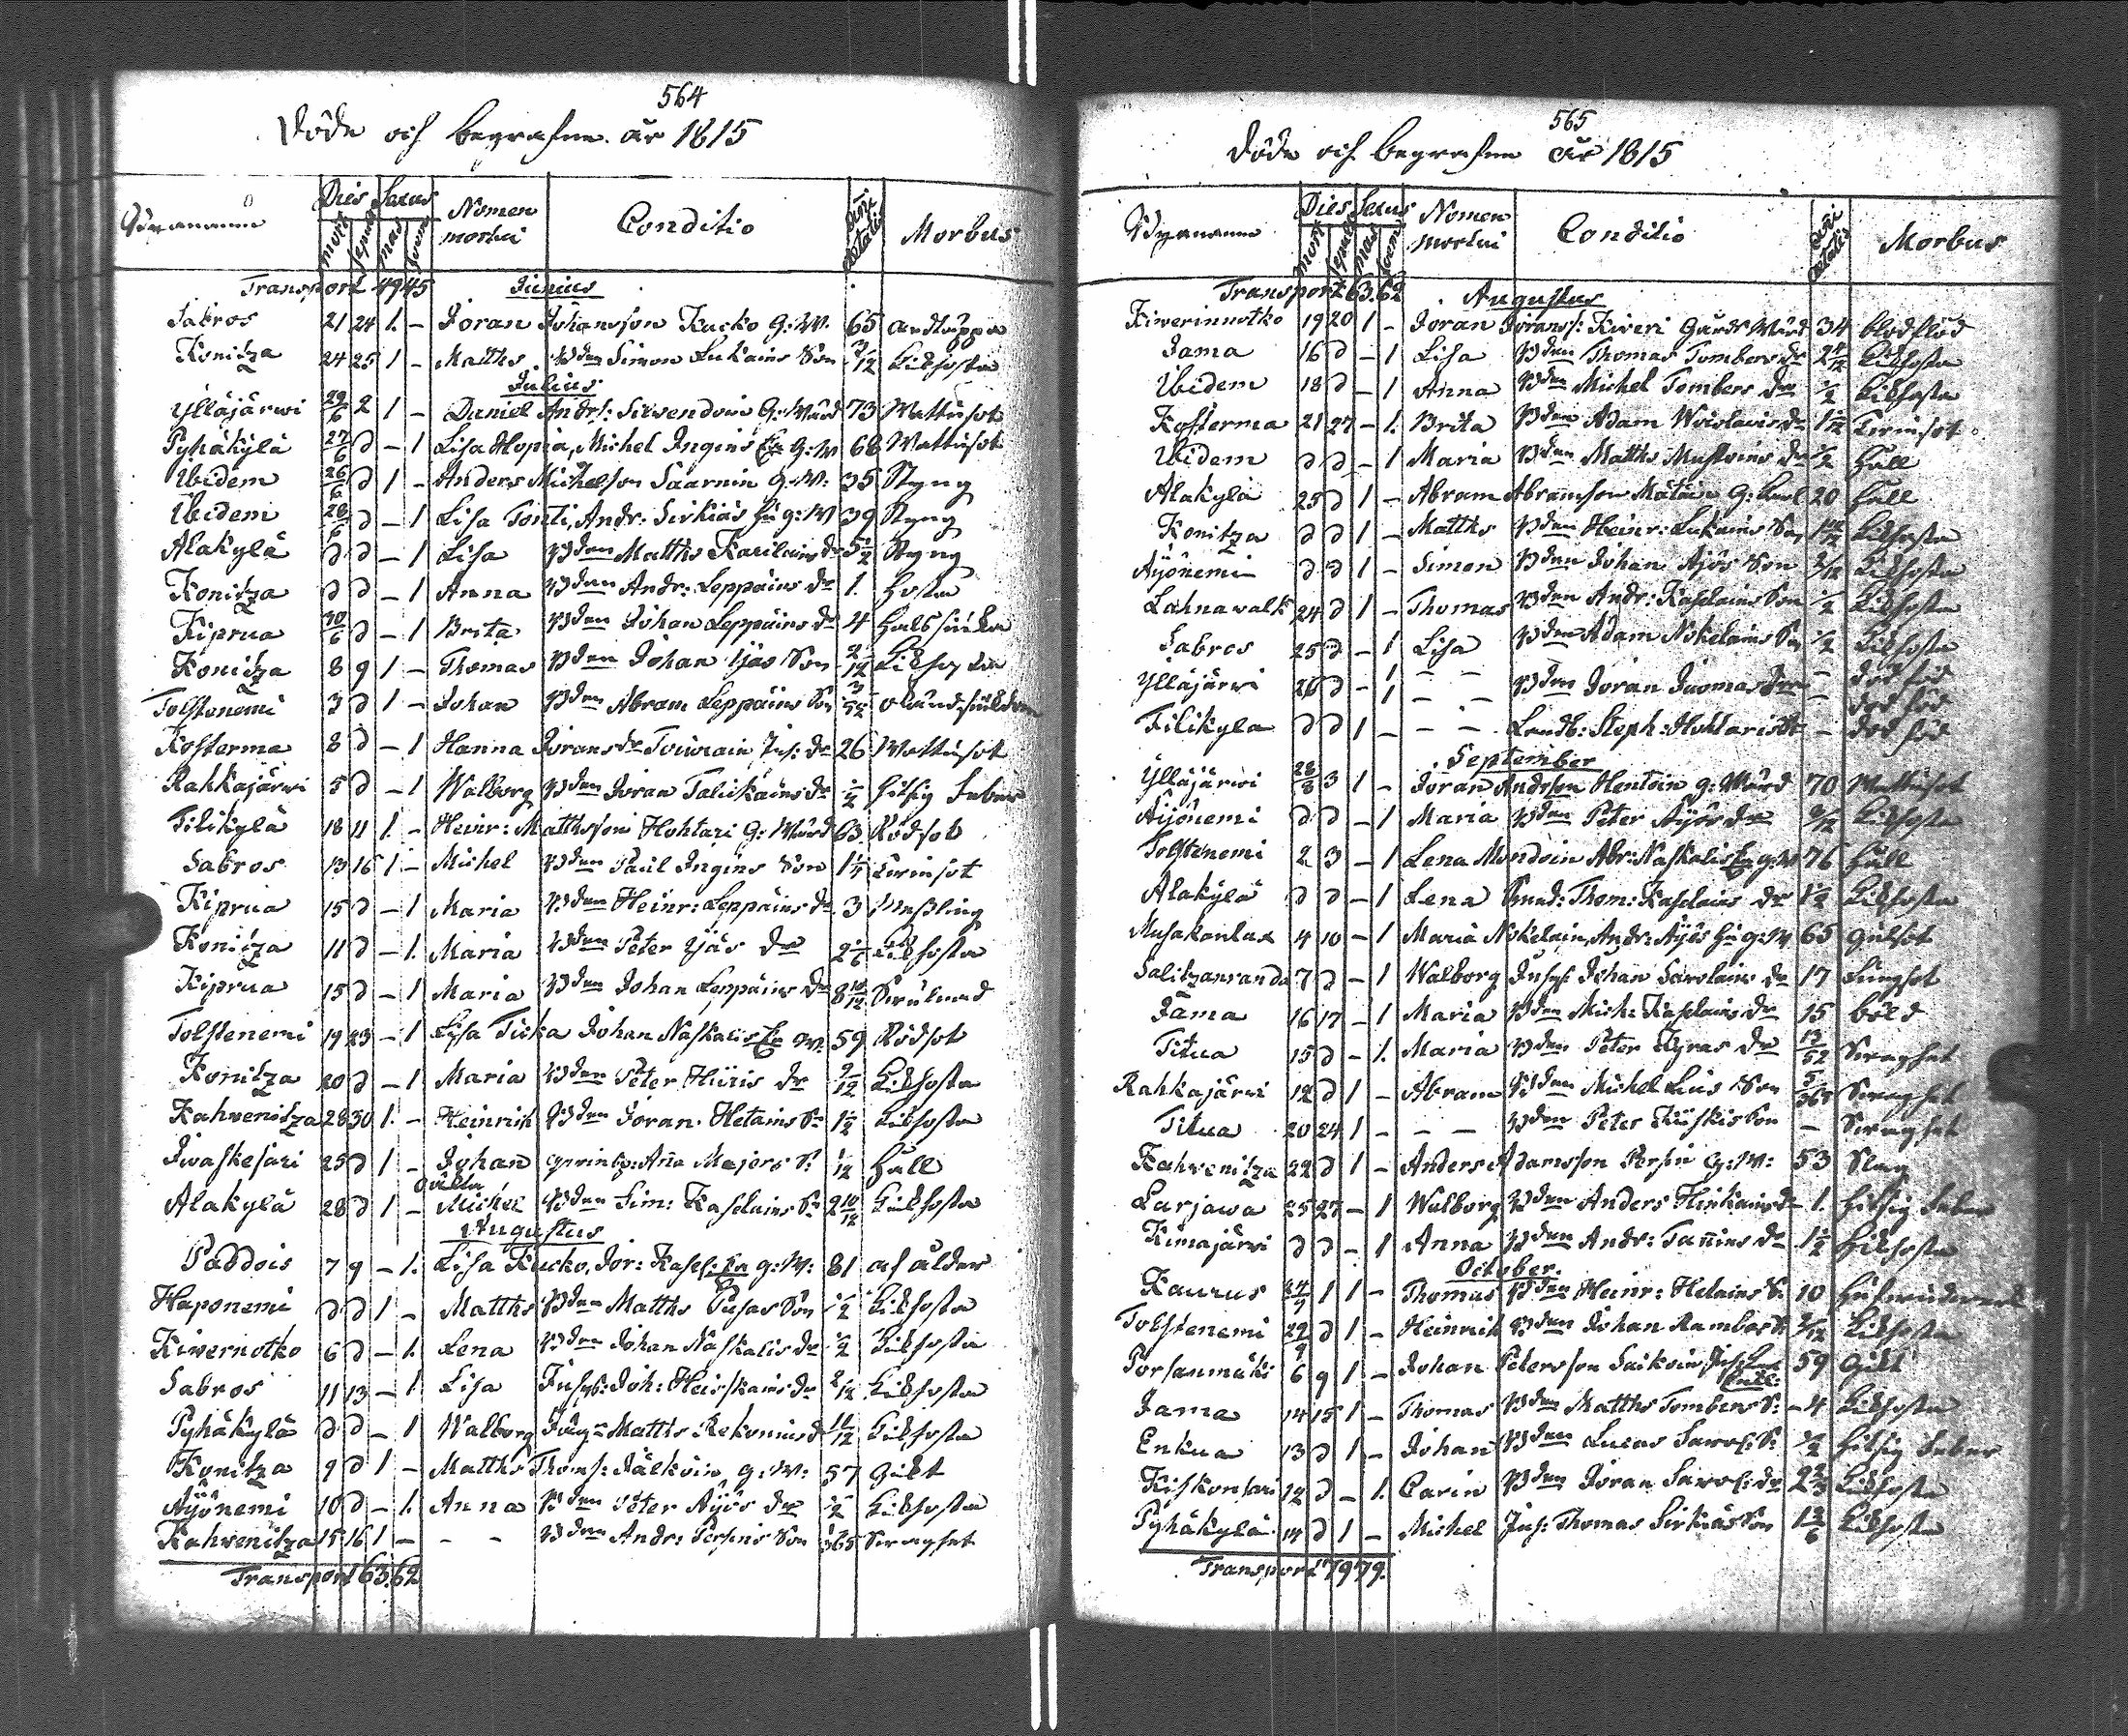 564
Döde och begrafne år 1815
Bynamnen Dies Sexus Nomen mortui Conditio Dies ætatis Morbus
mort sepult mas foem
Transport 49 45 Junius
Sabros 21 24 1. – Jöran Johansson Kucko G: W: 65 andtäppa
Konitza 24 25 1 – Matths Bden Simon Lukains Son 3/12 Kikhosta
Julius
Ylläjärwi 29/6 2 1 – Daniel Andrs: Siwendoin G: Wärd 73 Wattusot
Pyhäkylä 27/6 d – 1 Lisa Hopia, Michel Ingins Ea G: W 68 Wattusot
Ibidem 26/6 d 1 – Anders Michelsson Saarnin G: W: 35 Styng
Ibidem 28/6 d – 1 Lisa Tonti, Andr: Sirkiäs Hu g: W 39 Styng
Alakylä d d – 1 Lisa Bden Matths Karilains dr 5 1/2 Styng
Konitza d d – 1 Anna Bden Andr: Leppäins dr 1. Hosta
Kiprua 30/6 d – 1 Brita Bden Johan Leppäins dr 4 Halssiuka
Konitza 8 9 1 – Thomas Bden Johan Yjäs Son 2/12 Kikhosta
Tolstenemi 3 d 1 – Johan Bden Abram Leppäins Son 3/52 okänd siukdom
Kosterma 8 d – 1 Hanna Jöransdr Touwain Inh: dr 26 Wattusot
Rahkajärwi 5 d – 1 Walborg Bden Jöran Talickains dr 1/2 hitsig feber
Tilikylä 18 11 1. – Heinr: Matthsson Hohtari G: Wärd 63. Rödsot
Sabros 13 16 1 – Michel Bden Paul Ingins Son 1 1/4 Twinsot
Kiprua 15 d – 1 Maria Bden Heinr: Leppäins dr. 3 Messling
Konitza 11 d – 1. Maria Bden Peter Yjäs dr 2 1/6 Kikhosta
Kiprua 15 d – 1 Maria Bden Johan Leppäins Dr 8 10/12
Tolstenemi 19 23 – 1 Lisa Ticka Johan Naskalis Ea W: 59 Rödsot
Konitza 20 d – 1 Maria Bden Peter Hüris dr 9/12 Kikhosta
Kahwenitza 28 30 1. – Heinrich Bden Jöran Hetains Sn 1 1/2 Kikhosta
Iwaskesari 25 d 1 – Johan Anna Majors S: 1/12 Håll
oäkta
Alakylä 28 d 1 – Michel Bden Sim: Kaselains Sn 2 10/12 Kikhosta
Augustus
Paddois 7 9 – 1. Lisa Kucko, Jör: Kases: Ea g: W: 81 af ålder
Haponemi d d 1 – Matths Bden Matths Pusas Son 1/2 Kikhosta
Kiwernotko 6 d – 1. Lena Bden Johan Naskalis dr 1/2 Kikhosta
Sabros 11 13 – 1 Lisa Inhys: Joh: Heisskains dr 2/12 Kikhosta
Pyhäkylä d d – 1 Walborg Matths Rekonins d 11/12 Kikhosta
Konitza 9 d 1 – Matths Thoms: Jälkoin g: W: 57 Gikt
Äyönemi 10 d – 1. Anna Bden Peter Äyös dr 1/2 Kikhosta
Kahwenitza 15 16 1 – – – Bden Andr: Persins Son 1/365 Swaghet
Transport 63. 62
565
Döde och begrafne år 1815
Bynamnen Dies Sexus Nomen mortui Conditio Dies ætatis Morbus
mort sepult mas foem
Transport 63. 62 Augustus
Kiwerinnotko 19 20 1 – Jöran Jörans: Kiweri Gårds Wärd 34 blodflöd
Jama 16 d – 1 Lisa Bden Thomas Tombers dr 2 4/12 Kikhosta
Ibidem 18 d – 1 Anna Bden Michel Tombers dr 1/2 Kikhosta
Kosterma 21 27 – 1. Brita Bden Adam Woiolains dr 1 1/2 Twinsot
Ibidem d d – 1 Maria Bden Matths Mustoins dr 1/2 Håll
Alakylä 25 d 1 – Abram Abramsson Mätäin G: Karl 20 Håll
Konitza d d 1 – Matths Bden Heinr: Lukains Son Kikhosta
Äyönemi d d 1 – Simon Bden Johan Äjös Son 2/12 Kikhosta
Lahnawalk 24 d 1 – Thomas Bden Andr: Kaselains Son 1/2 Kikhosta
Sabros 25 d – 1 Lisa Bden Adam Nokelains 1/2 Kikhosta
Ylläjärwi 26 d – 1 – – Bden Jöran Juomas – död föd
1 – – – död föd
Tilikylä d d 1 – – – Landb: Steph: Hohtaris – död föd
September
Ylläjärwi 28/8 3 1 – Jöran Andrsson Hentoin g: Wärd 70 Wattusot
Äyönemi d d – 1 Maria Bden Peter Äyös dr 9/12 Kikhosta
Tolstenemi 2 3 – 1 Lena Mondoin Abr: Naskalis Ea g: W 76 Håll
Alakylä d d – 1 Lena Thom: Kaselains dr 1 1/2 Kikhosta
Musakanlax 4 10 – 1 Maria Nokelain, Andr: Äyös Hu g: W 65 Gulsot
Salitzanranda 7 d – 1 Walborg Inhys: Johan Sawolains dr 17 Lungsot
Jama 16 17 – 1 Maria Bden Mich: Kaselains dr 15 böld
Titua 15 d – 1. Maria Bden Peter Kyras dr 13/52 Swaghet
Rahkajärwi 12 d 1 – Abram Bden Michel Lius Son 5/365 Swaghet
Titua 20 24 1 – – – Bden Peter Kiiskis Son – Swaghet
Kahwenitza 22 d 1 – Anders Adamsson Persin G: W: 53 Slag
Larjawa 25 27 – 1 Walborg Bden Anders Hinkains dr 1. hitsig feber
Kimajärwi d d – 1 Anna Bden Andr: Tannins dr 1 1/2 Kikhosta
October.
Kaurus 24/9 1 1 – Thomas Bden Heinr: Hetains S: 10 Hufwudwerk
Tolstenemi 29/9 d 1 – Heinrich Bden Johan Rambos S: 3/12 Kikhosta
Porsanmäki 6 9 1 – Johan Petersson Saikoin 59 Gikt
Jama 14 15 1 – Thomas Bden Matths Tombers S: – 4 Kikhosta
Enkua 13 d 1 – Johan Bden Lucas Sawol: S: 1/2 hitsig feber
Kiskonsari 12 d – 1. Carin Bden Jöran Sawol: dr 2 2/3 Kikhosta
Pyhäkylä 14 d 1 – Michel Inh: Thomas Sirkiäs Son 1 3/6 Kikhosta
Transport 79 79.